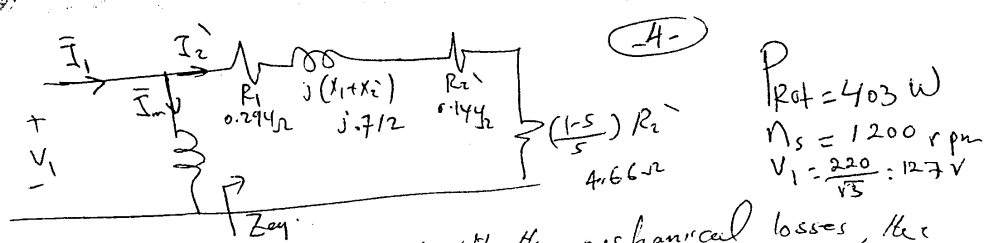 -4-
Ī₁ I₂`
Īm
R₁
0.294Ω
j(X₁+X₂`)
j.712
R₂`
0.144Ω
(1-S/S) R₂`
4.66Ω
+
V₁
-
Zeq.
PRot = 403 W
nₛ = 1200 rpm
V₁ = 220/√3 : 127 V
mechanical losses, the